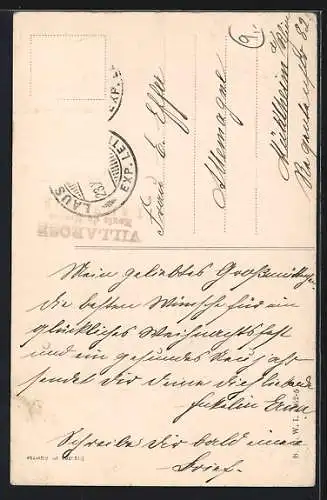 9.
EXP. LET
LAUS
EXP. LET
VILLAROSE
Frau C. Effer
Allemagne
Mülheim a/Rhein
Regentenstr 82
Mein geliebtes Großmütterchen
die besten Wünsche für ein
glückliches Weihnachtsfest
und ein gesundes
sendet dir deine dich liebende
Enkelin Erna
Schreibe dir bald einen
Brief.